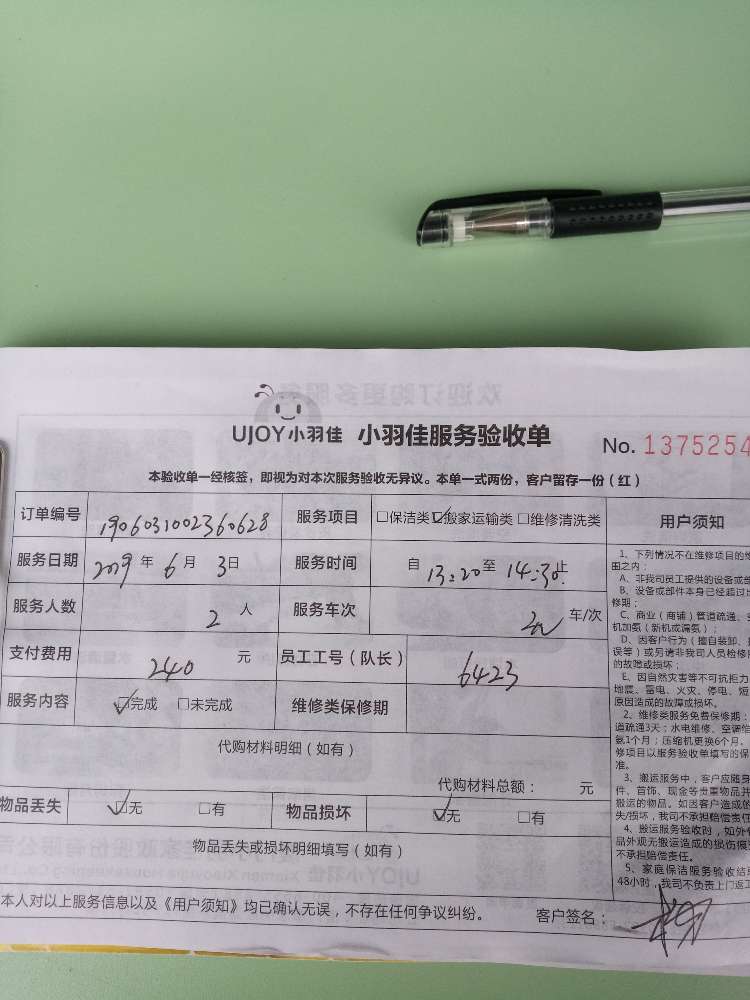 UJOY小羽佳 小羽佳服务验收单 No. 1375254
本验收单一经核签，即视为对本次服务验收无异议。本单一式两份，客户留存一份（红）
订单编号 1906031002360628 服务项目 □保洁类 ☑搬家运输类 □维修清洗类
服务日期 2019 年 6 月 3 日 服务时间 自 13:20 至 14:30 止
服务人数 2 人 服务车次 车/次
支付费用 240 元 员工工号（队长） 6423
服务内容 ☑完成 □未完成 维修类保修期
代购材料明细（如有）
代购材料总额： 元
物品丢失 ☑无 □有 物品损坏 ☑无 □有
物品丢失或损坏明细填写（如有）
本人对以上服务信息以及《用户须知》均已确认无误，不存在任何争议纠纷。 客户签名：
用户须知
1、下列情况不在维修项目的
围之内：
A、非我司员工提供的设备或
B、设备或部件本身已经超过
修期；
C、商业（商铺）管道疏通、
机加氨（新机或漏氨）；
D、因客户行为（擅自装卸、
误等）或另请非我司人员检修
的故障或损坏；
E、因自然灾害等不可抗拒力
地震、雷电、火灾、停电、短
原因造成的故障或损坏。
2、维修类服务免费保修期：
道疏通3天；水电维修、空调
氨1个月；压缩机更换6个月。
修项目以服务验收单填写的保
准。
3、搬运服务中，客户应随身
件、首饰、现金等贵重物品并
搬运的物品。如因客户造成的
失/损坏，我司不承担赔偿责任
4、搬运服务验收时，如外
品外观无搬运造成的损伤痕
不承担赔偿责任。
5、家庭保洁服务验收结
48小时，我司不负责上门返工